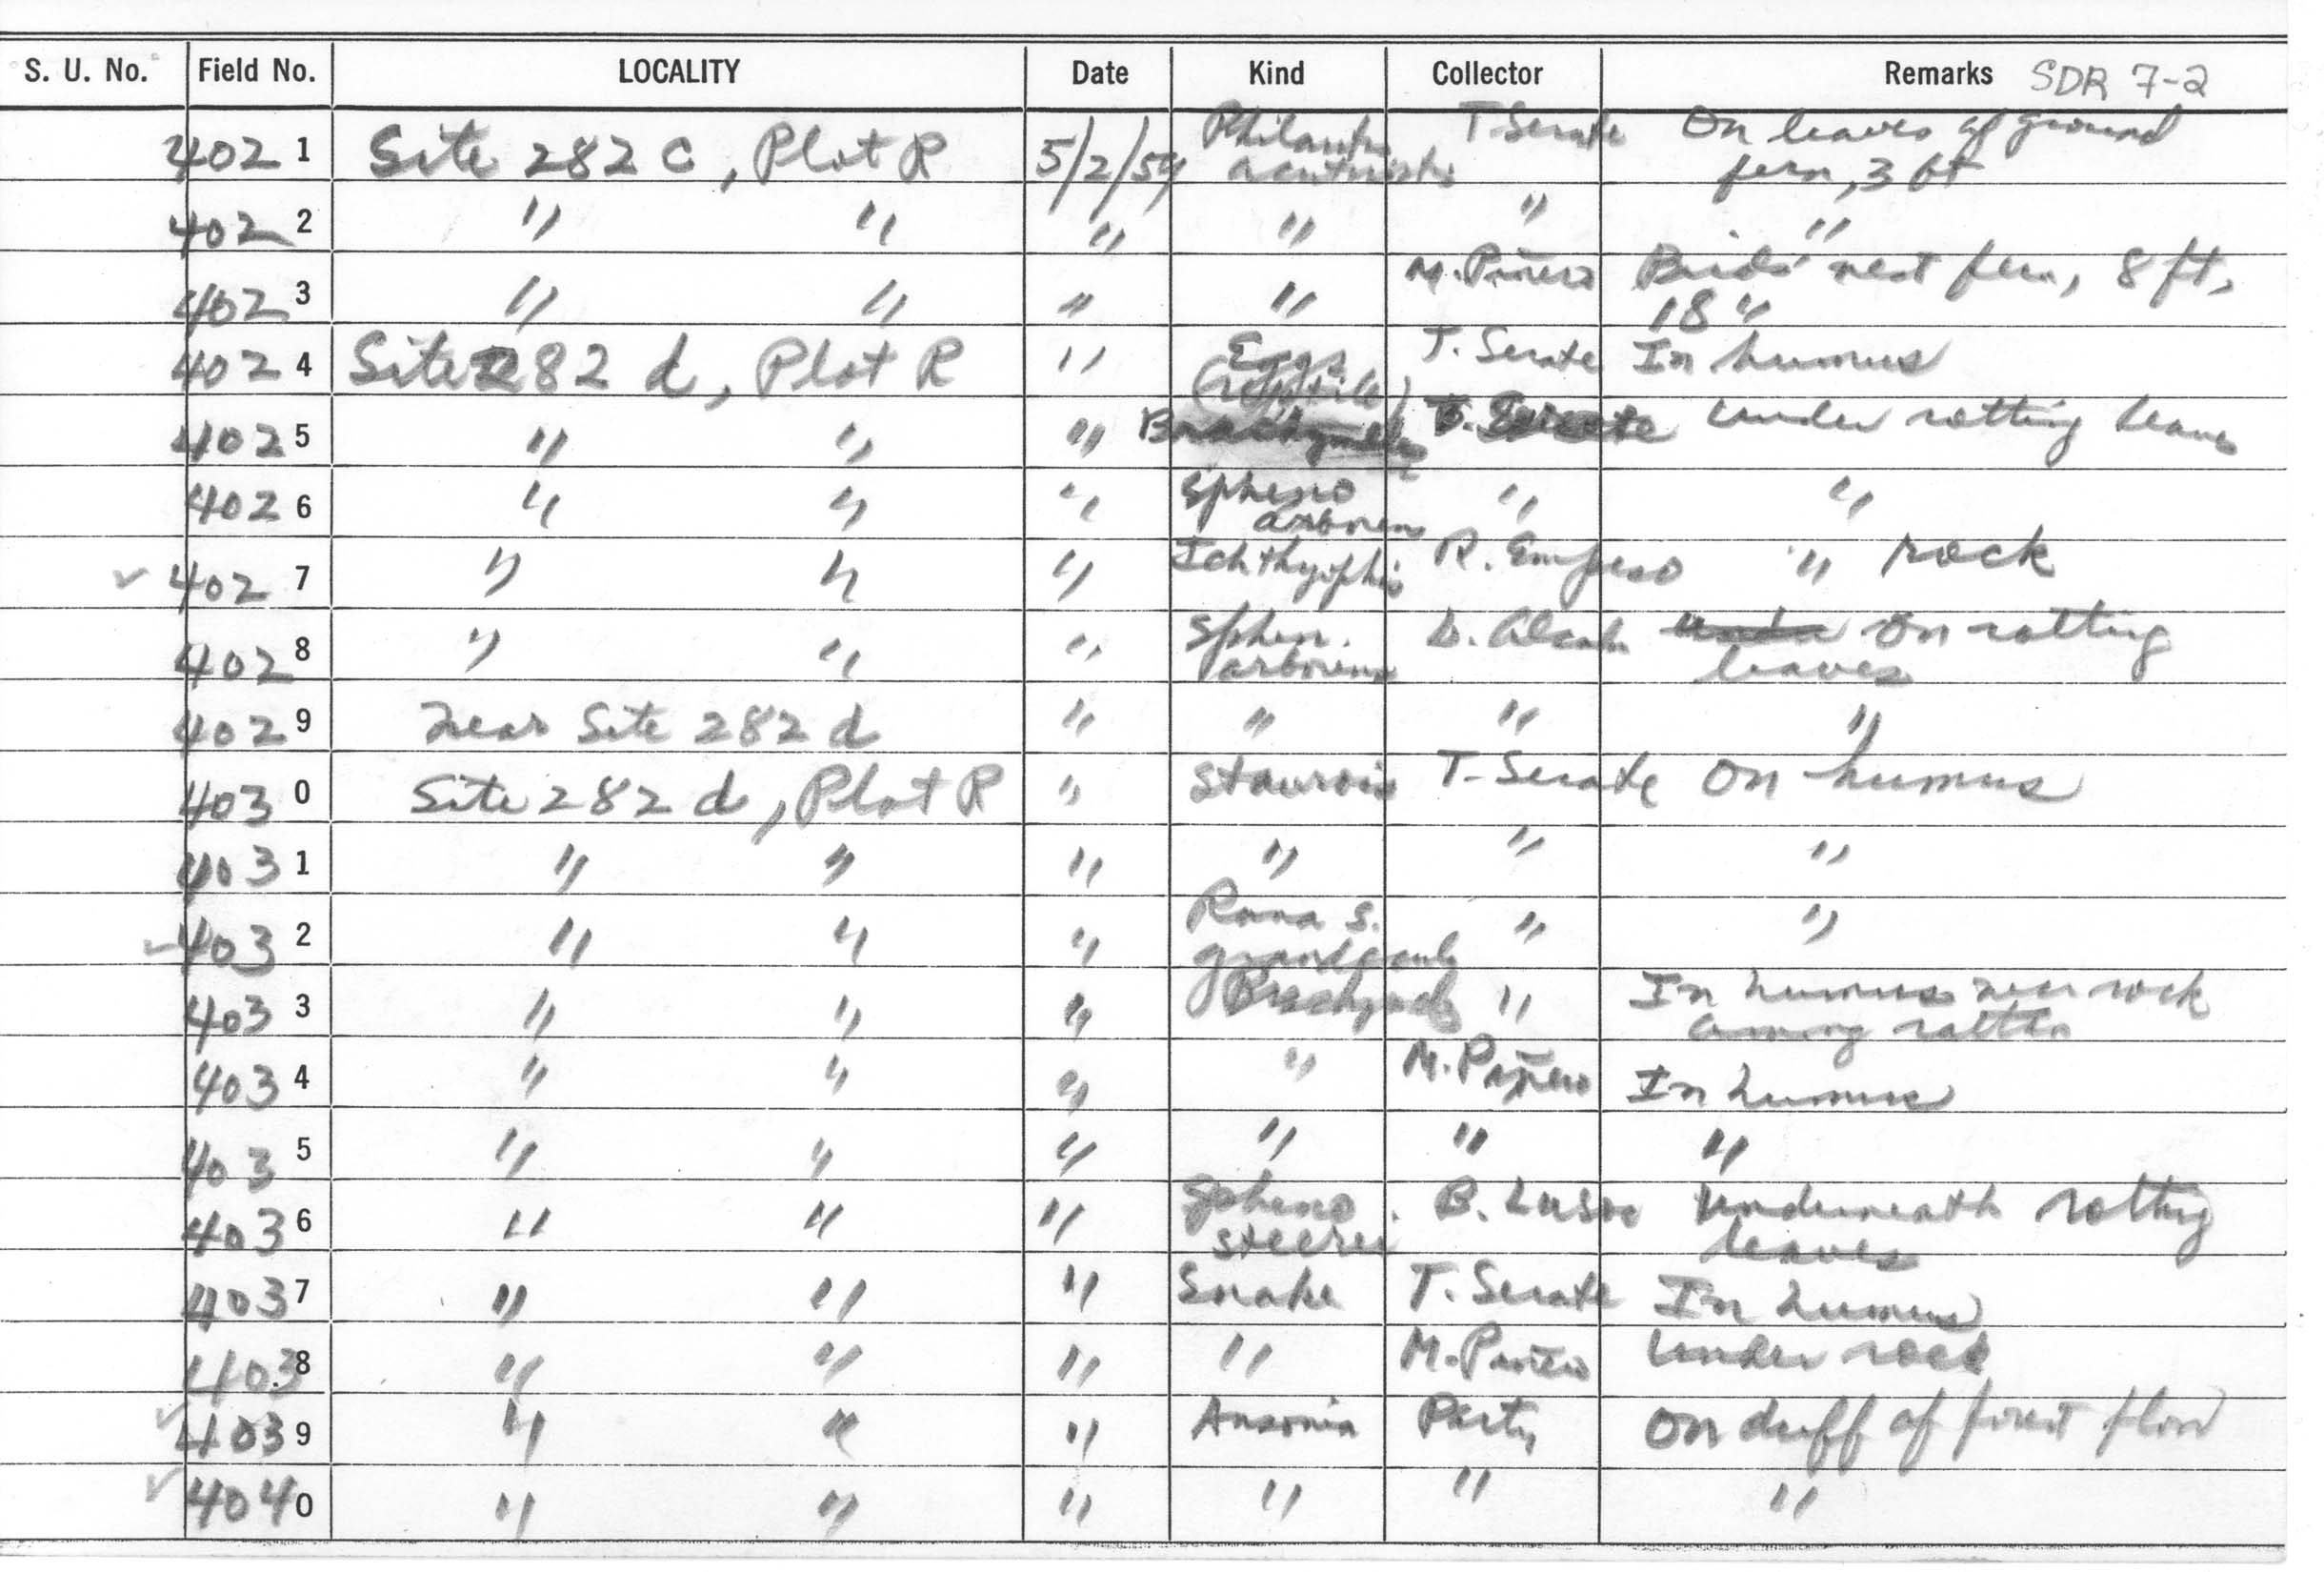 S. U. No. Field No. LOCALITY Date Kind Collector Remarks SDR 7-2
4021 Site 282 c, Plot R 5/2/59 Philautus T. Serate On leaves of ground
fern, 3 ft
4022 " " " " " "
4023 " " " " M. Piñero Birds' nest fern, 8 ft,
18"
4024 Site 282 d, Plot R " Eggs T. Serate In humus
(reptile)
4025 " " " Brachymeles T. Serate under rotting leaves
4026 " " " Spheno " "
arboreus
4027 " " " Ichthyophis R. Empeso " rock
4028 " " " Sphen. D. Alcala under on rotting
arboreus leaves
4029 Near Site 282 d " " " "
4030 Site 282 d, Plot R " Staurois T. Serate On humus
4031 " " " " " "
4032 " " " Rana s. " "
4033 " " " " In humus near rock
among
4034 " " " " M. Piñero In humus
4035 " " " " " "
4036 " " " Spheno. B. Lusoc Underneath rotting
steerei leaves
4037 " " " Snake T. Serate In humus
4038 " " " " M. Piñero Under rock
4039 " " " Ansonia Party On duff of forest floor
4040 " " " " " "